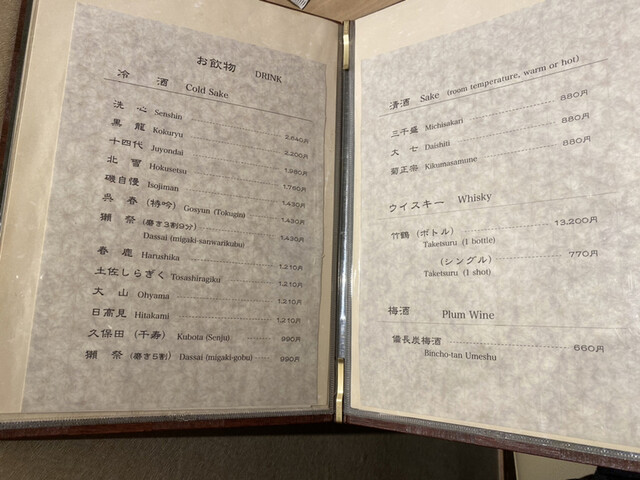 お飲物 DRINK
冷 酒 Cold Sake
洗 心 Senshin 2,640円
黒 龍 Kokuryu 2,200円
十四代 Juyondai 1,980円
北 雪 Hokusetsu 1,760円
磯自慢 Isojiman 1,430円
呉 春 (特吟) Gosyun (Tokugin) 1,430円
獺 祭 (磨き3割9分) 1,430円
Dassai (migaki-sanwarikubu)
春 鹿 Harushika 1,210円
土佐しらぎく Tosashiragiku 1,210円
大 山 Ohyama 1,210円
日高見 Hitakami 1,210円
久保田 (千寿) Kubota (Senju) 990円
獺 祭 (磨き5割) Dassai (migaki-gobu) 990円
清酒 Sake (room temperature, warm or hot)
三千盛 Michisakari 880円
大 七 Daishiti 880円
菊正宗 Kikumasamune 880円
ウイスキー Whisky
竹鶴 (ボトル) 13,200円
Taketsuru (1 bottle)
(シングル) 770円
Taketsuru (1 shot)
梅酒 Plum Wine
備長炭梅酒 660円
Bincho-tan Umeshu